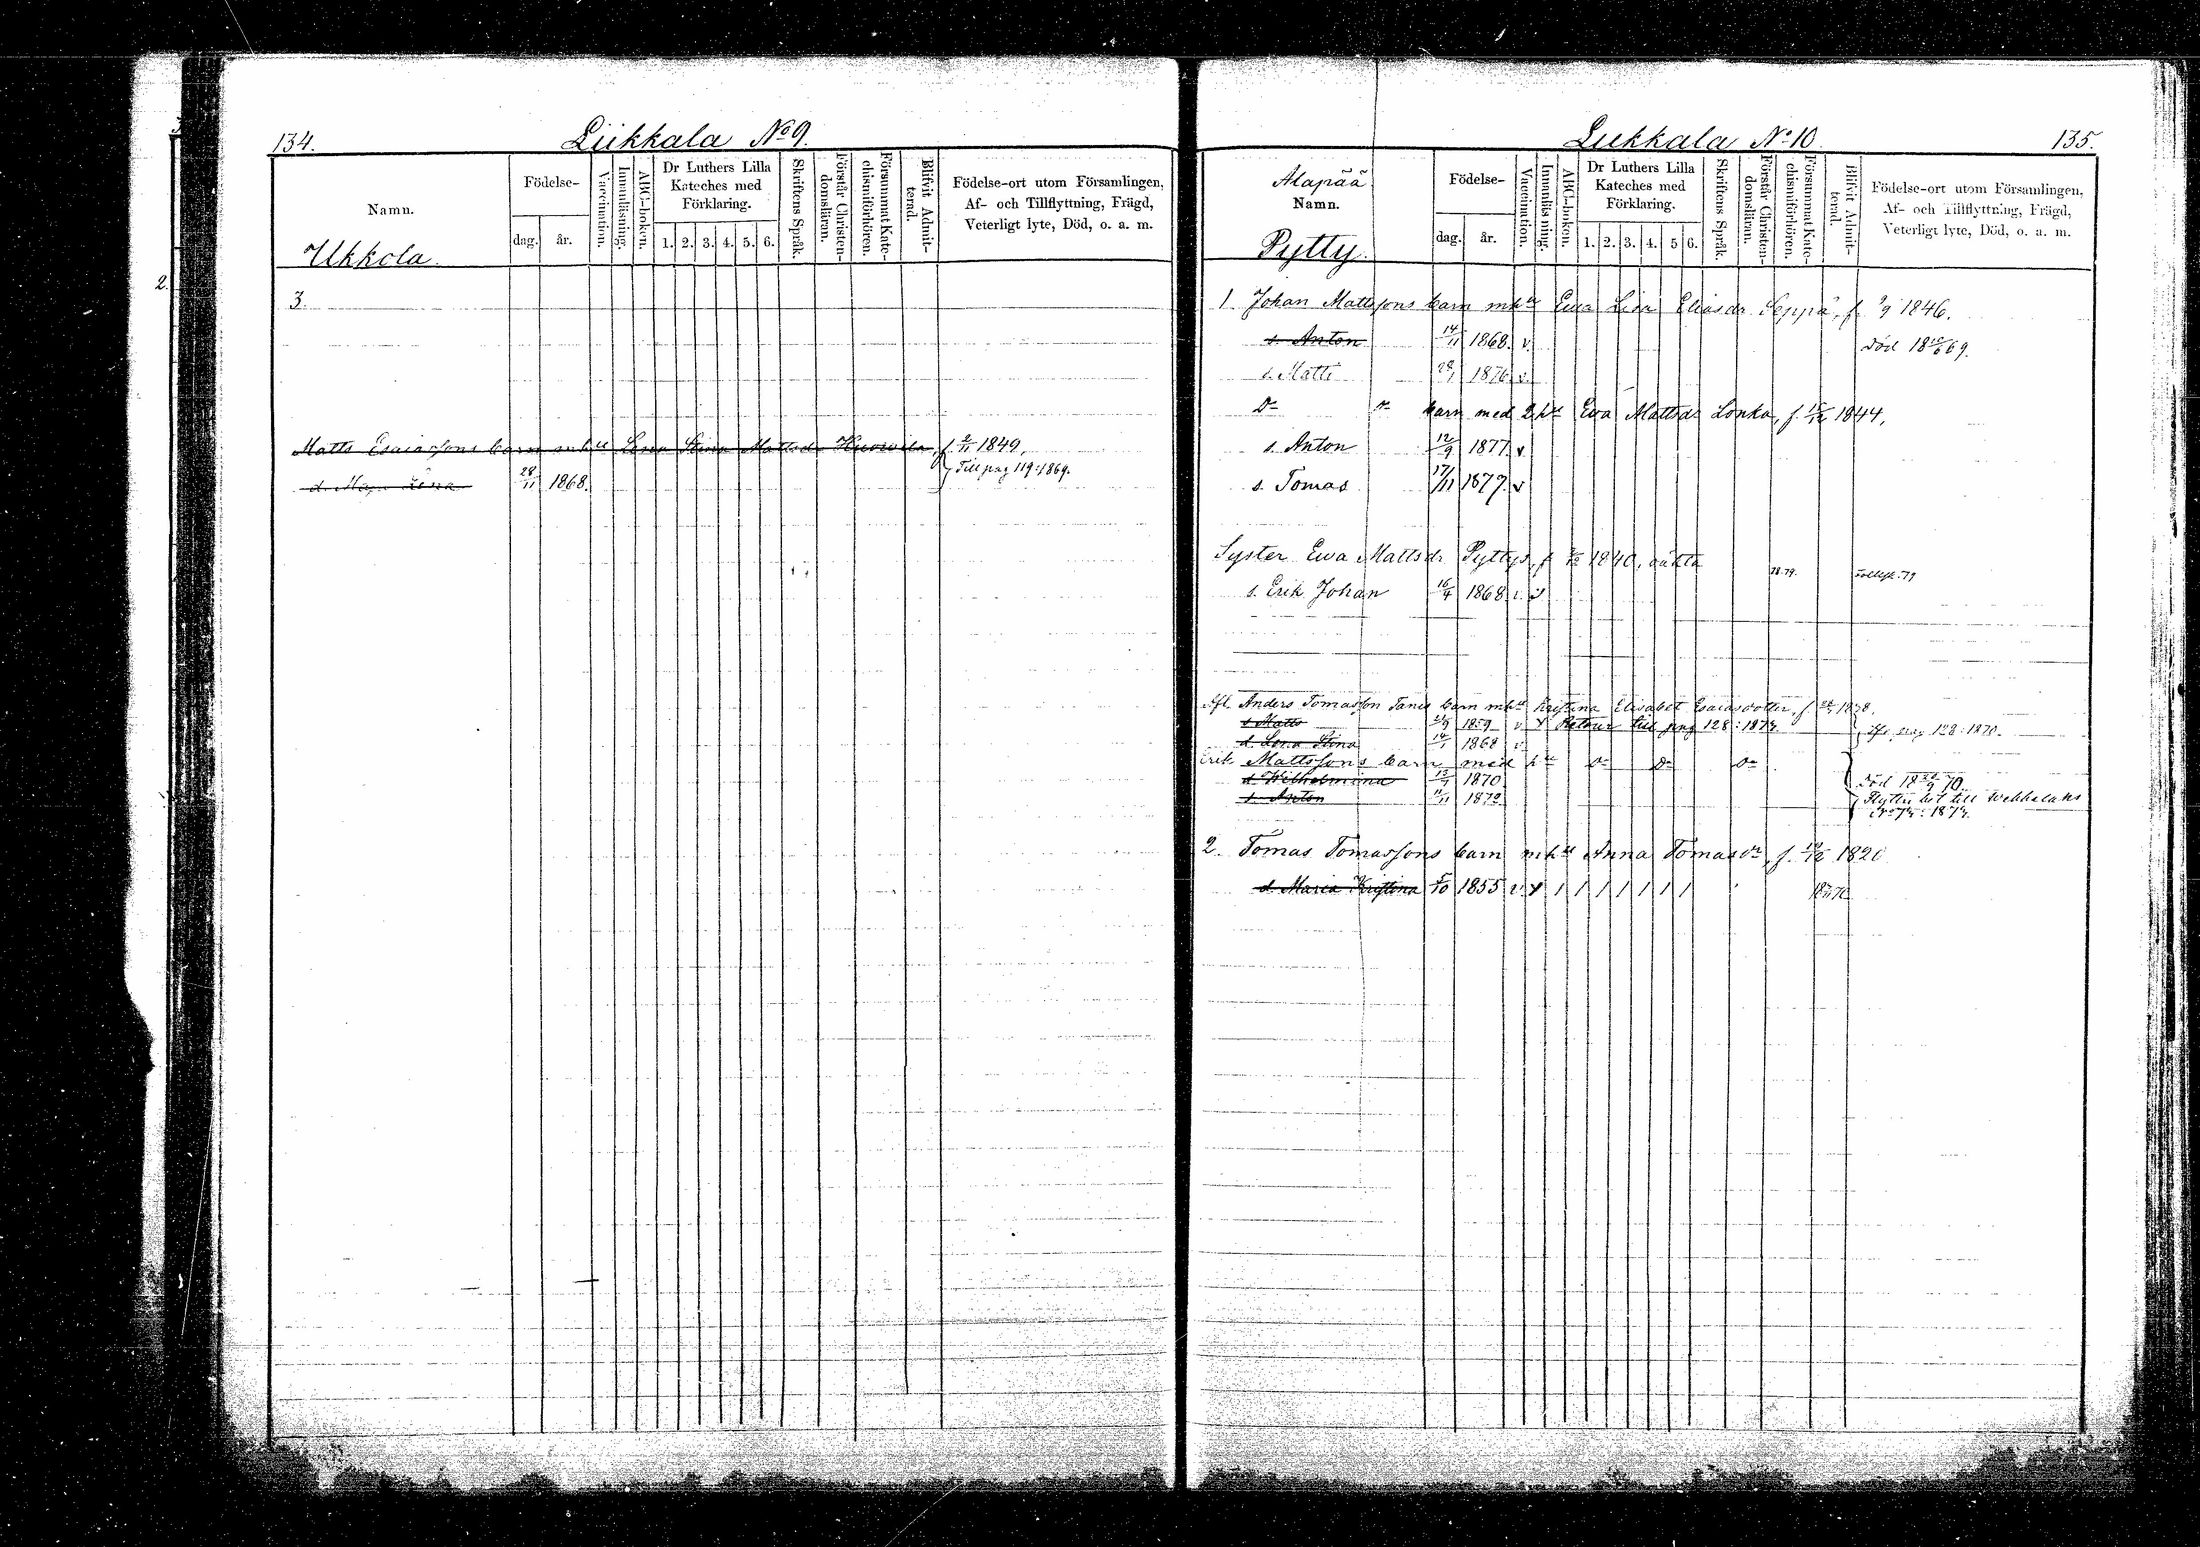 134.
Liikkala No 9.
Namn.
Ukkola
Födelse-
dag. år.
Vaccination.
Innanläsning.
ABC-boken.
Dr Luthers Lilla
Kateches med
Förklaring.
1. 2. 3. 4. 5. 6.
Skriftens Språk.
Förstår Christen-
domsläran.
Försummat Kate-
chismiförhören.
Blifvit Admit-
terad.
Födelse-ort utom Församlingen,
Af- och Tillflyttning, Frägd,
Veterligt lyte, Död, o. a. m.
2.
3.
Matts Esaiassons barn m hu Lena Stina Mattsdr f. 2/11 1849.
d. Maja Lena 28/11 1868. Till pag 119:1869.
Liikkala No 10.
135.
Alapää
Namn.
Pytty.
Födelse-
dag. år.
Vaccination.
Innanläsning.
ABC-boken.
Dr Luthers Lilla
Kateches med
Förklaring.
1. 2. 3. 4. 5 6.
Skriftens Språk.
Förstår Christen-
domsläran.
Försummat Kate-
chismiförhören.
Blifvit Admit-
terad.
Födelse-ort utom Församlingen,
Af- och Tillflyttning, Frägd,
Veterligt lyte, Död, o. a. m.
1. Johan Mattssons barn m hu Ewa Lisa Eliasdr Seppä, f. 1846.
s. Anton 14/11 1868. v. Död 69.
s. Matti 1876. v.
Do barn med 2 hu Eva Mattsdr Lonka, f. 1844.
s. Anton 12/9 1877. v
s. Tomas 17/11 1877. v
Syster Ewa Mattsdr Pyttys, f. 1840, oäkta 78.79.
s. Erik Johan 16/4 1868. v. v
Afl. Anders Tomasson Tanis barn m hu Kristina Elisabet Esaiasdotter, f. 1838.
s. Matts 1859 v Y Retour till pag 128:1874.
d. Lena Stina 14/1 1868 v. pag 128:1870.
Erik Mattssons barn med hu Do Do Do
d. Wilhelmina 13/1 1870 Död 70.
s. Anton 11/11 1872 till
No 74:1874.
2. Tomas Tomassons barn m hu Anna Tomasdr, f. 1820
d. Maria Kristina 5/10 1855 v Y / / / / / / /